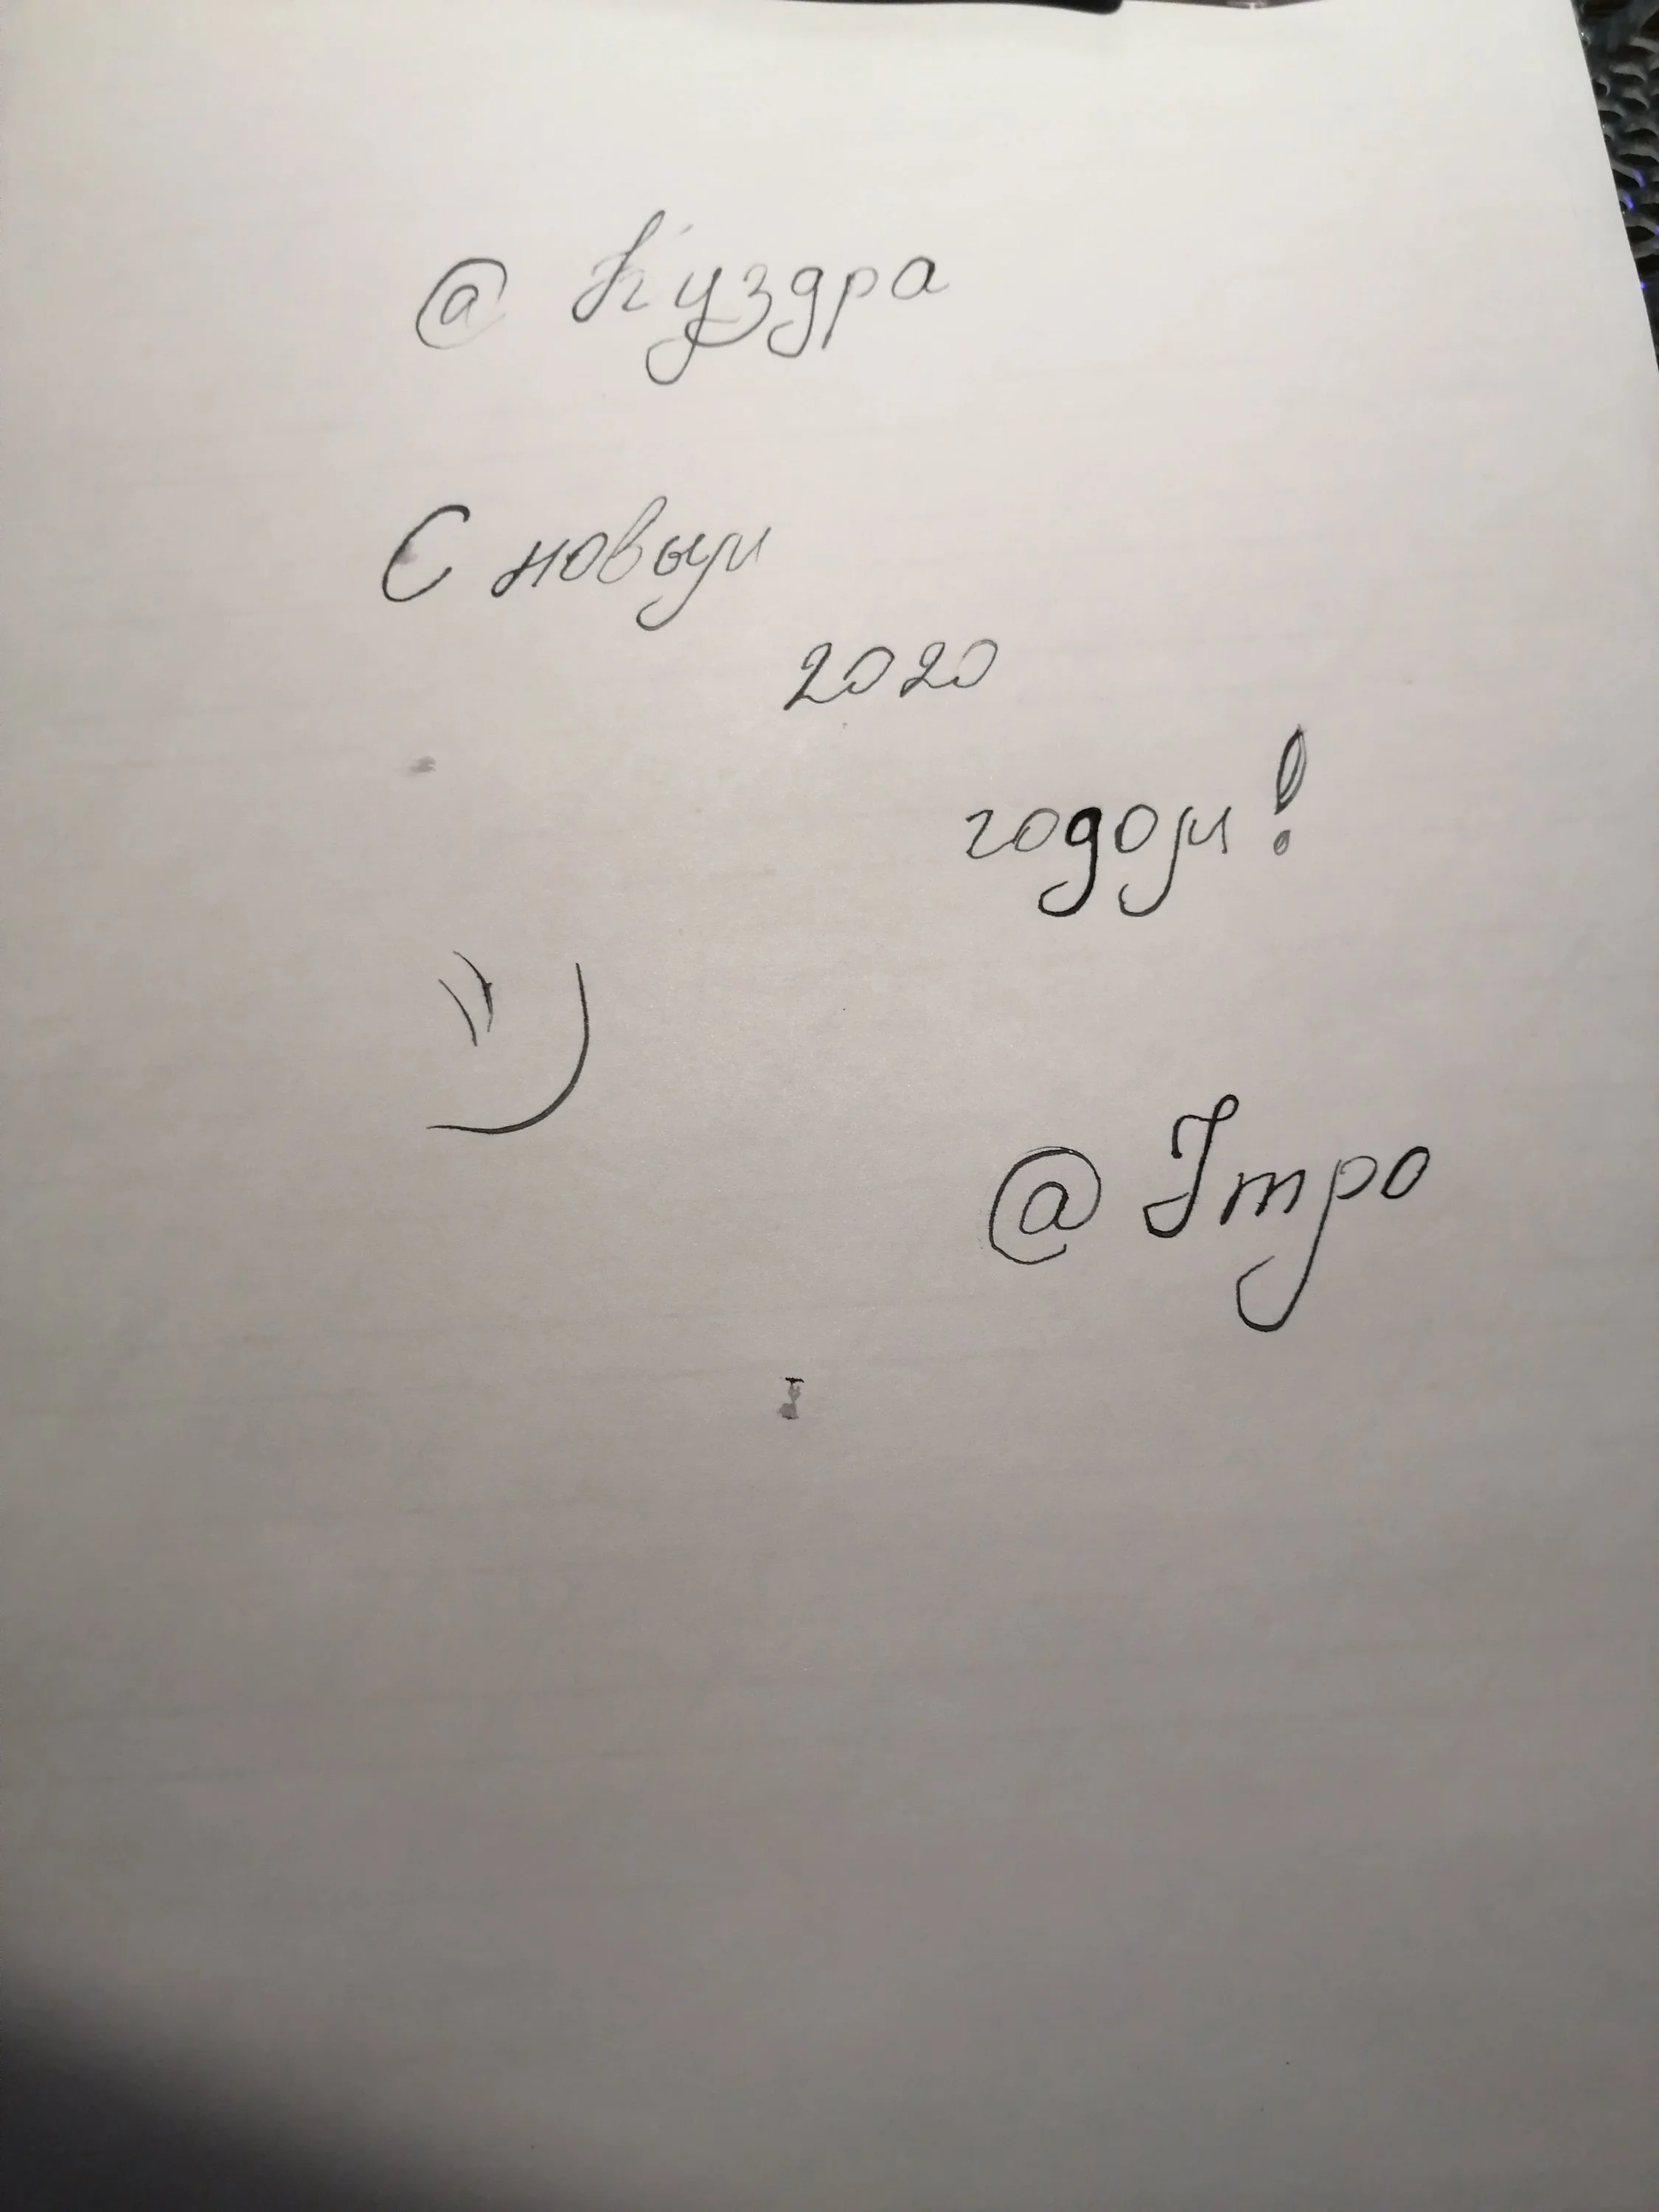 @ Куздра
С новым
2020
годом!
@Jmpo